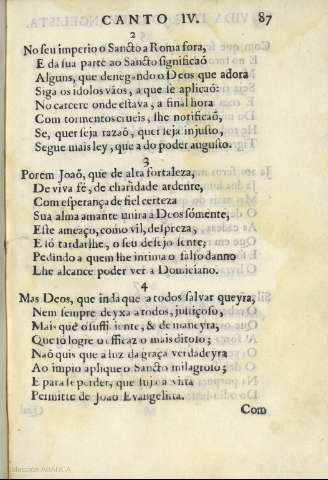 CANTO IV. 87
2
No seu imperio o Sancto a Roma fora,
E da sua parte ao Sancto significaõ
Alguns, que denegando o Deos que adora
Siga os idolos vãos, a que se aplicaõ:
No carcere onde estava, a final hora
Com tormentos crueis, lhe notificaõ,
Se, quer seja razaõ, quer seja injusto,
Segue mais ley, que a do poder augusto.
3
Porem Joaõ, que de alta fortaleza,
De viva fé, de charidade ardente,
Com esperança de fiel certeza
Sua alma amante unira a Deos sómente,
Este ameaço, como vil, despreza;
E só tardarlhe, o seu desejo sente;
Pedindo a quem lhe intima o falso danno
Lhe alcance poder ver a Domiciano.
4
Mas Deos, que inda que a todos salvar queyra,
Nem sempre deyxa a todos, justiçoso,
Mais que o sufficiente, & de maneyra,
Que só logre o efficaz o mais ditoso;
Naõ quis que a luz da graça verdadeyra
Ao impio aplique o Sancto milagroso;
E para se perder, que fuja a vista
Permitte de Joaõ Evangelista.
Com
Colección ABANCA